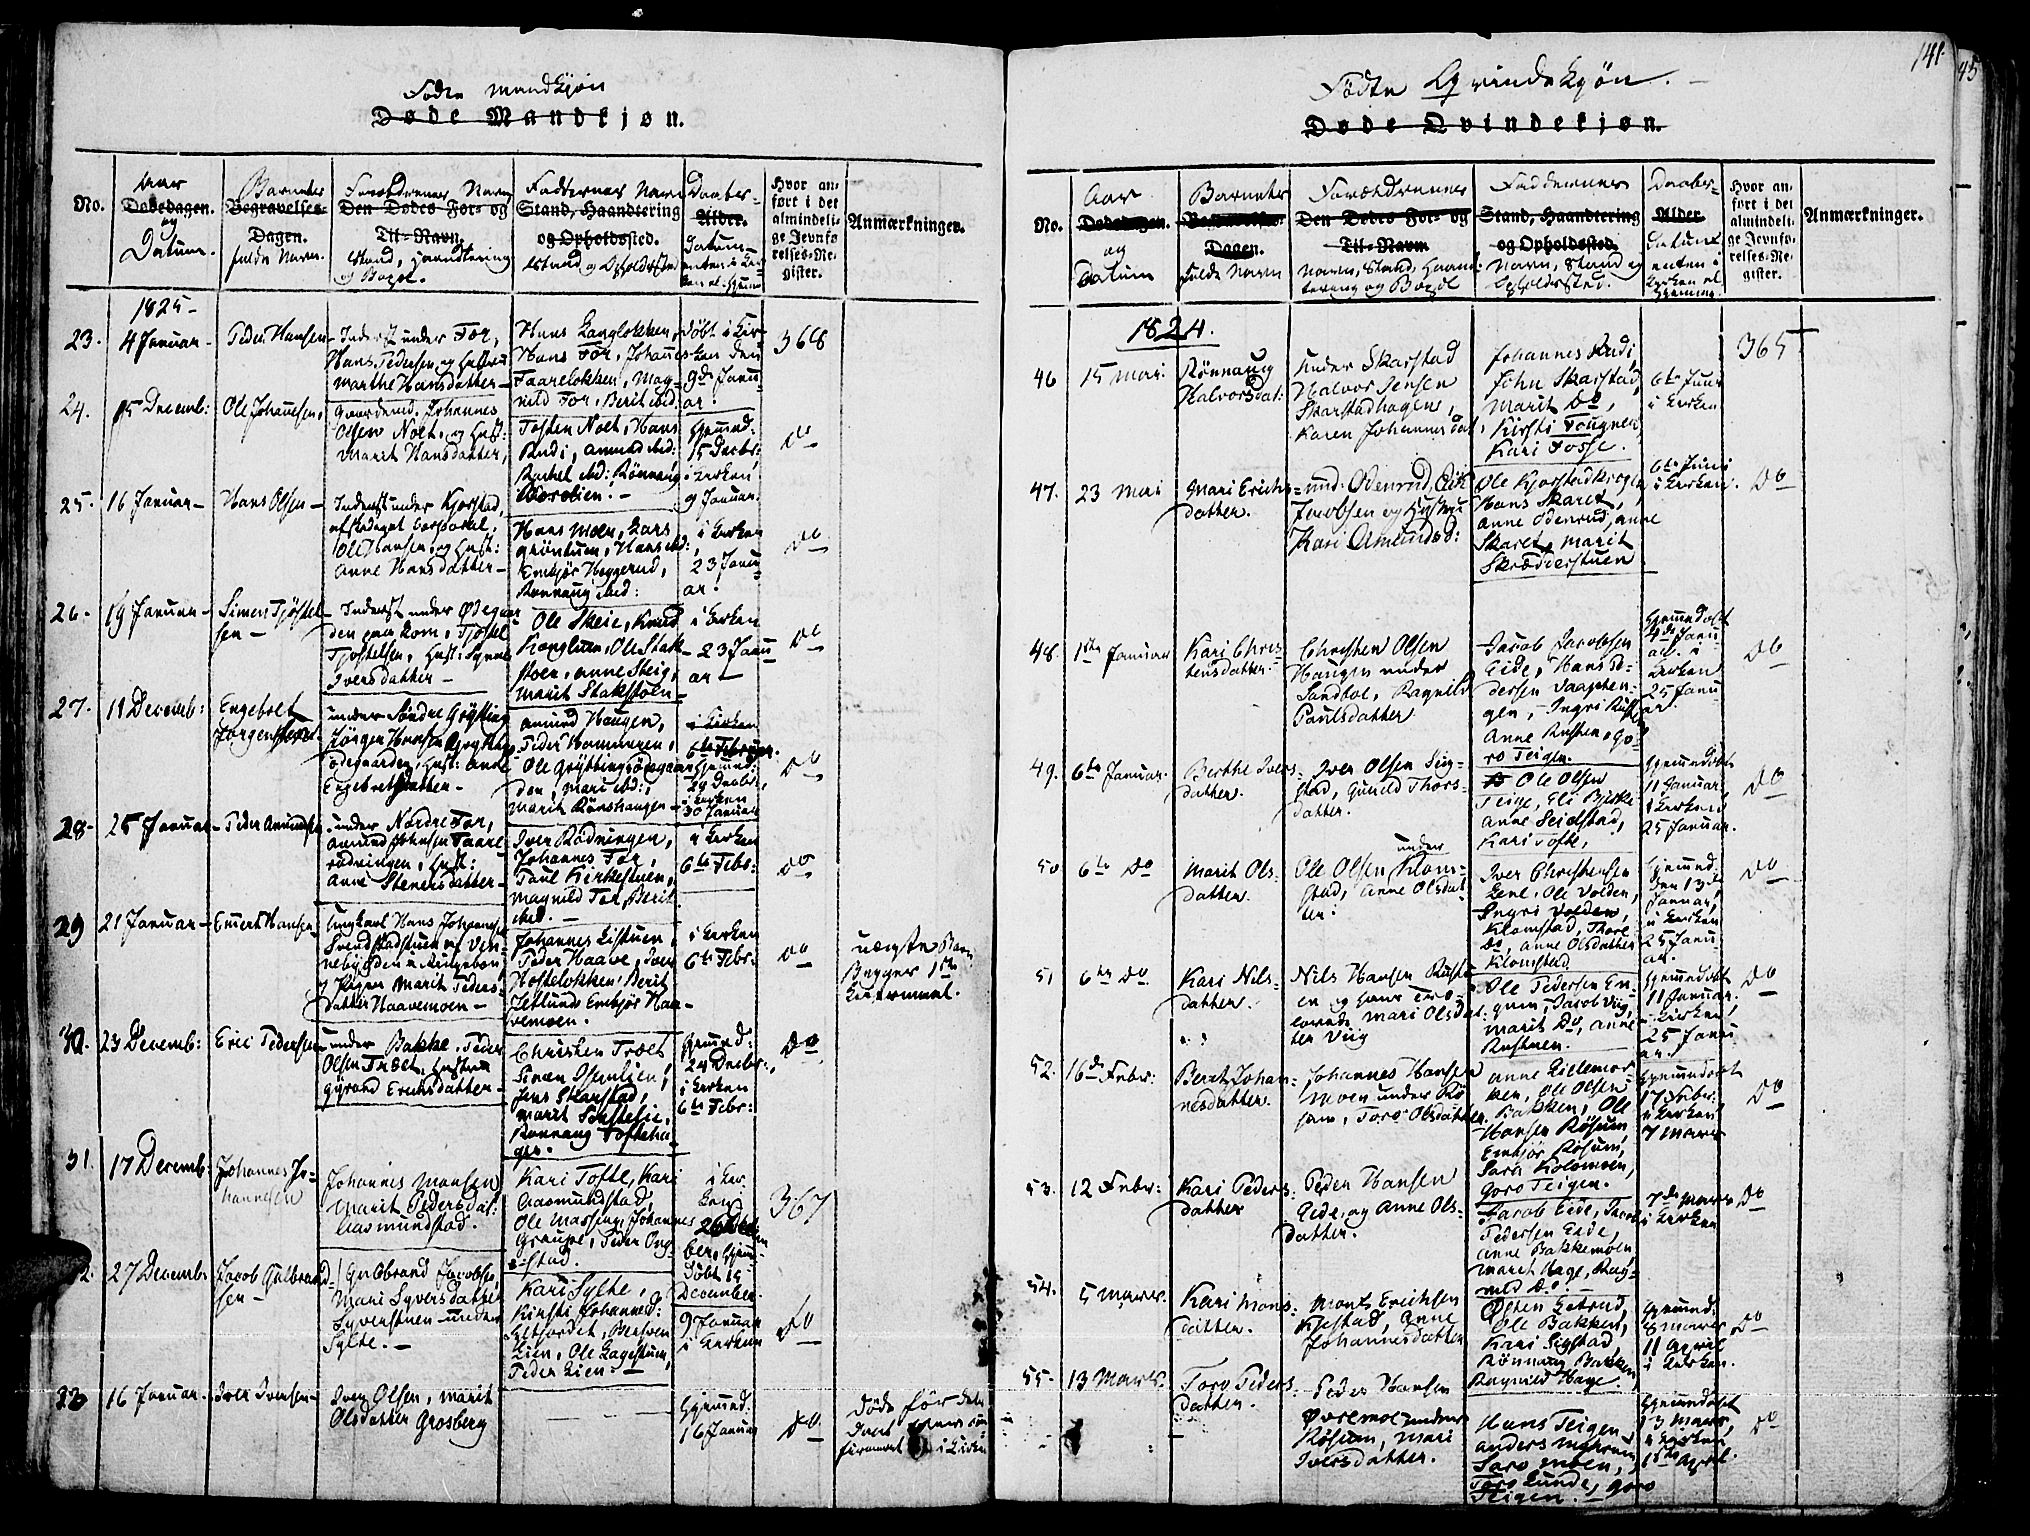 Fødte Mandkjøn
Døde Mandkjøn.
No.
Aar
Dødedagen.
og
Datum.
Barnets
Begravelses-
Dagen.
fulde Navn.
Forældrenes Navn
Den Dødes For- og
Til-Navn.
Stand, Haandtering
og Bopæl.
Faddernes Navn
Stand, Haandtering
og Opholdssted.
Stand og Opholdssted
Daabs-
Alder.
Datum
Hvor an-
ført i det
almindeli-
ge Jevnfø-
relses-Re-
gister.
Anmærkninger.
1825-
23. 4 Januar - Peder Hansen
Inderst under For,
Hans Pedersen og Hustru
Marthe Hansdatter -
Hans Langløkken,
Hans For, Johannes
Faareløkken, Mag-
nild For, Berit ibd:
døbt i Kir-
ken den
9de Janu-
ar.
368
24. 15 Decemb: Ole Johannesen,
Gaardmd. Johannes
Olsen Noet, og Hust:
Marit Hansdatter,
Tosten Noet, Hans
Rudi, Amund ibd:
Rachel ibd: Rønnaug
Hjemmed.
15 Decbr:
i Kirken
9 Januar.
do
25. 16 Januar - Hans Olsen -
Inderst under Kjorstad,
afskediget Corporal,
Ole Hansen, og Hust:
Anne Hansdatter -
Hans Moen, Lars
Grøntuen, Hans ibd:
Embjør Heggerud,
Rønnaug ibd:
i Kirken
23 Janu-
ar.
do
26. 19 Januar - Simen Tjøstel-
sen -
Inderst under Ødegaar-
den paa Kom, Tjøstel
Tjøstelsen, Hust: Synne
Iversdatter -
Ole Skeie, Knud
Kongluen, Ole Stak-
støen, Anne Steig,
Marit Stakstøen -
i Kirken
23 Janu-
ar -
do
27. 11 Decemb: Engebret
Jørgensen
under Søndre Grytting
Jørgen Hansen Grytting-
ødegaarden, Hust: Anne
Engebretsdatter -
Amund Haugen,
Peder Hammeren,
Ole Gryttingsødegaar-
den, Mari ibd:,
Marit Rønshaugen -
i Kirken
6te Februar.
Hjemmd:
29 Decbr,
i Kirken
30 Januar
do
28 - 25 Januar - Peder Amundsen
under Nordre For,
Amund Johnsen Faare-
rødningen, Hust:
Anne Stenersdatter -
Iver Rødningen,
Johannes For,
Poul Kirkestuen,
Magnild For, Berit
ibid. -
i Kirken
6te Febr:
do
29 21 Januar - Emert Hansen -
Ungkarl Hans Johannes
Svendstadstuen af Ven-
nebygden i Ringebou,
Pigen Marit Peders-
datter Haavemoen -
Johannes Listuen,
Peder Haave, Iver
Hosteløkken, Berit
Jetlund, Embjør Haa-
vemoen.
i Kirken
6te Febr:
do
uægte Barn
Begges 1ste
Leiermaal.
30. 23 Decemb: Eric Pedersen
under Bakke. Peder
Olsen Træet, Hustru
Gyrand Ericksdatter -
Christen Træet
Simen Isumlien,
Jens Skarstad,
Marit Sonstelie,
Rønnaug Tofteha-
gen.
Hjemmd:
24 Decbr:
i Kirken
6te Febr:
do
31. 17 Decemb: Johannes Jo-
hannesen
Johannes Monsen
Marit Pedersdat:
Aasmundstad.
Kari Tofte, Kari
Aasmundstad,
Ole Massing, Johannes
Graupe, Peder Ong-
stad.
i Kir-
ken
26 Decem
ber, Hjem-
døbt 19
December.
367
32. 27 Decemb. Jacob Gulbrand-
sen -
Gulbrand Jacobsen
Mari Syversdatter
Syverstuen under
Sylte. -
Kari Sylte,
Kirsti Johannesd:
Lien, Ole Lagestuen,
Peder Lien. -
9 Januar
i Kirken
do
33 16 Januar. - Iver Iversen -
Iver Olsen, Marit
Olsdatter Grosberg
Hjemmd.
16 Januar
do
Døde før den
i Kirken
141.
45
Fødte Qvindekjøn. -
Døde Qvindekjøn.
No.
Aar
Dødedagen.
og
Datum
Barnets
Begravelses-
Dagen.
fulde Navn
Forældrenes
Den Dødes For- og
Til-Navn
Navn, Stand, Haand-
tering og Bopæl
Faddernes
Stand, Haandtering
og Opholdssted.
Navn, Stand og
Opholdssted.
Daabs-
Alder
Datum
enten i
Kirken el.
Hjemme.
Hvor an-
ført i det
almindeli-
ge Jevnfø-
relses-Re-
gister.
Anmærkninger.
1824.
46 15 Mai. Rønnaug
Halvorsdat:
under Skarstad
Halvor Jensen
Skarstadhagen,
Karen Johannesdat.
Johannes Rudi,
John Skarstad
Marit do,
Kirsti Fougner
Kari Fosse.
6te Juni
i Kirken
365
47. 23 Mai Mari Erichs-
datter.
und. Odenrud, Erik
Jacobsen og Hustru
Kari Amundsd:
Ole Kjorstadkroge
Hans Skaret,
Anne Odenrud, Anne
Skaret, Marit
Skrædderstuen
6te Juni
i Kirken.
do
48. 1ste Januar Kari Chris-
tensdatter.
Christen Olsen
Haugen under
Sandboe, Ragnild
Paulsdatter.
Jacob Jacobsen
Eide, Hans Pe-
dersen Vaaphen-
gen, Ingri Rusten
Anne Rusten, Go-
ro Teigen.
Hjemmdøbt
4de Janu-
ar i
Kirken
25 Janu-
ar.
do
49. 6te Januar. Berthe Ivers-
datter.
Iver Olsen Sig-
stad, Gunild Thors-
datter.
Ole Olsen
Teige, Eli Bjerke
Anne Seielstad,
Kari Tofte,
Hjemmdøbt
11 Januar,
i Kirken
25 Januar.
do
50 6te do Marit Ols-
datter.
under
Ole Olsen Klom-
stad, Anne Olsdat-
ter.
Iver Christensen
Lene, Ole Volden,
Ingri Volden,
Klomstad, Thore
do, Anne Olsdatter
Klomstad
Hjemmd.
den 13de
Januar,
i Kirken
25 Janu-
ar.
do
51 6te do Kari Nils-
datter.
Nils Hansen Rust-
en og Mari Olsdat-
ter Viig
Ole Pedersen En-
gum, Jacob Viig,
Marit do, Anne
Rustuen.
Hjemmdøbt
11 Januar,
i Kirken
25 Janu-
ar.
do
52. 16de Febr: Beret Johan-
nesdatter.
Johannes Hansen
Moen under Rø-
sum, Toro Olsdatter
Anne Lillemor-
ken, Ole Olsen
Bakken, Ole
Hansen Røsum,
Embjør Røsum,
Sara Kolomoen,
Goro Teigen.
Hjemmdøbt
17 Febr.
i Kirken
7 Marts
do
53. 12 Febr: Kari Peders-
datter
Peder Hansen
Eide, og Anne Ols-
datter.
Jacob Eide, Thore
Pedersen Eide,
Anne Bakkemoen,
Marit Hage, Rag-
nild do. -
7de Marts
i Kirken
do
54. 5 Marts. Kari Mons-
datter.
Monts Erichsen
Kjestad, Anne
Johannesdatter
Østen Letrud,
Ole Bakken,
Kari Sigstad,
Rønnaug Bakken,
Ragnild Hage.
Hjemmd.
8 Marts
11 April
i Kirken.
do
55. 13 Marts. Toro Peders-
datter.
Peder Hansen
Øvremoe under
Røsum, Mari
Iversdatter.
Hans Teigen
Anders Moen
Saro Moen,
Toro Lunde, Goro
Teigen.
Hjemmdøbt
13 Marts,
i Kirken
18de April.
do